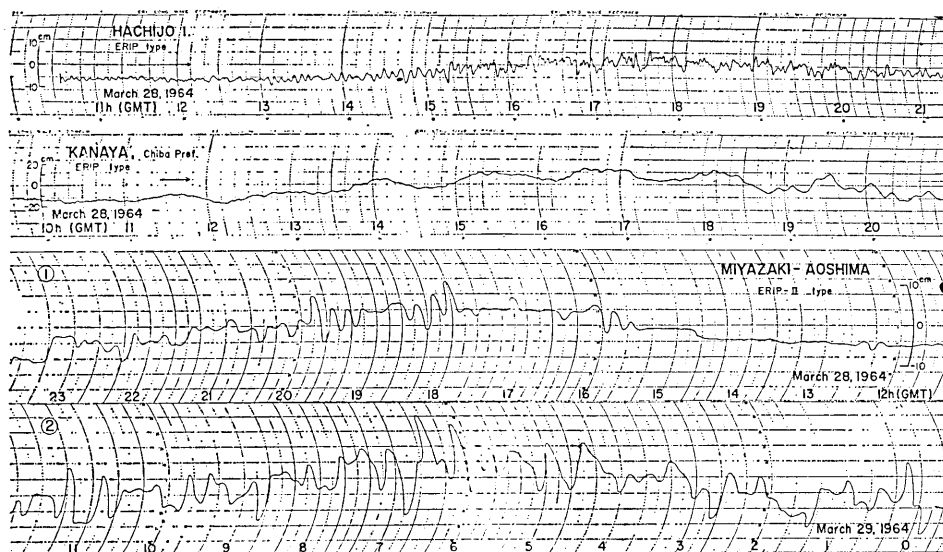 HACHIJO I.
ERIP type
10 cm
0
-10
March 28, 1964
11h (GMT) 12 13 14 15 16 17 18 19 20 21
KANAYA, Chiba Pref.
ERIP type
20 cm
0
-20
March 28, 1964
10h (GMT) 11 12 13 14 15 16 17 18 19 20
①
MIYAZAKI-AOSHIMA
ERIP-II type
10cm
0
-10
March 28, 1964
23 22 21 20 19 18 17 16 15 14 13 12h (GMT)
②
March 29, 1964
11 10 9 8 7 6 5 4 3 2 1 0